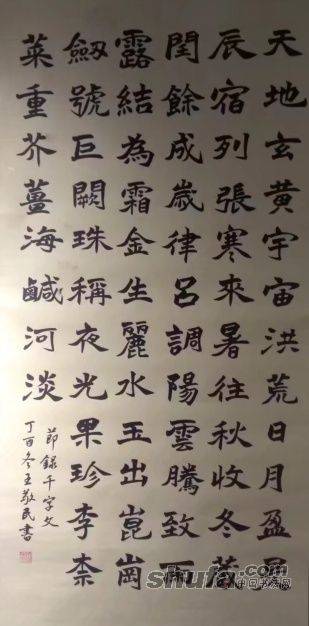 天地玄黃宇宙洪荒日月盈昃
辰宿列張寒來暑往秋收冬藏
閏餘成歲律呂調陽雲騰致雨
露結為霜金生麗水玉出崑崗
劔號巨闕珠稱夜光果珍李柰
菜重芥薑海鹹河淡
節錄千字文
丁酉冬王敬民書
shufa.com